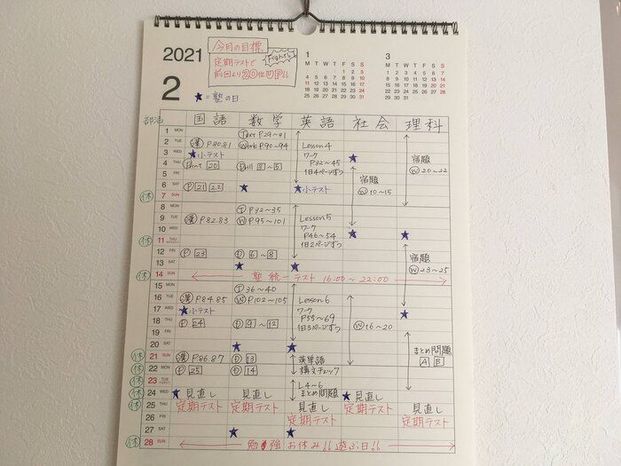 2021
2
今月の目標
定期テストで
Fight!!
★=塾の日
1
M T W T F S S
1 2 3
4 5 6 7 8 9 10
11 12 13 14 15 16 17
18 19 20 21 22 23 24
25 26 27 28 29 30 31
3
M T W T F S S
1 2 3 4 5 6 7
8 9 10 11 12 13 14
15 16 17 18 19 20 21
22 23 24 25 26 27 28
29 30 31
部活 国語 数学 英語 社会 理科
1 MON P29~81
2 TUE 漢 P80.81 Work P90~94 Lesson 4
3 WED ★小テスト ワーク ★ 宿題
4 THU 20 P32~45 W 20~22
5 FRI 1日4ページずつ 宿題
6 SAT 21 22 ★ ★小テスト W 10~15
休 7 SUN
8 MON T P32~35
9 TUE 漢 P82.83 W P95~101 Lesson5
10 WED ワーク ★ ★
休 11 THU P46~54
12 FRI 23 6~8 1日2ページずつ 宿題
13 SAT ★ ★ W 23~25
休 14 SUN 塾 統一テスト 16:00~22:00
15 MON T 36~40
16 TUE 漢 P84.85 W P102~105 Lesson 6
17 WED ★小テスト ワーク W 16~20 ★
18 THU 24 9~12 P55~69
19 FRI 1日5ページずつ
20 SAT ★ ★ まとめ問題
休 21 SUN 漢 P86.87 13 英単語 A B
休 22 MON 25 14 構文チェック
休 23 TUE L4~6
休 24 WED ★見直し 見直し まとめ問題 ★見直し
休 25 THU 定期テスト 定期テスト 見直し 定期テスト 見直し
26 FRI 定期テスト 定期テスト
27 SAT ★ ★
休 28 SUN 勉強お休み!! 遊ぶ日!!